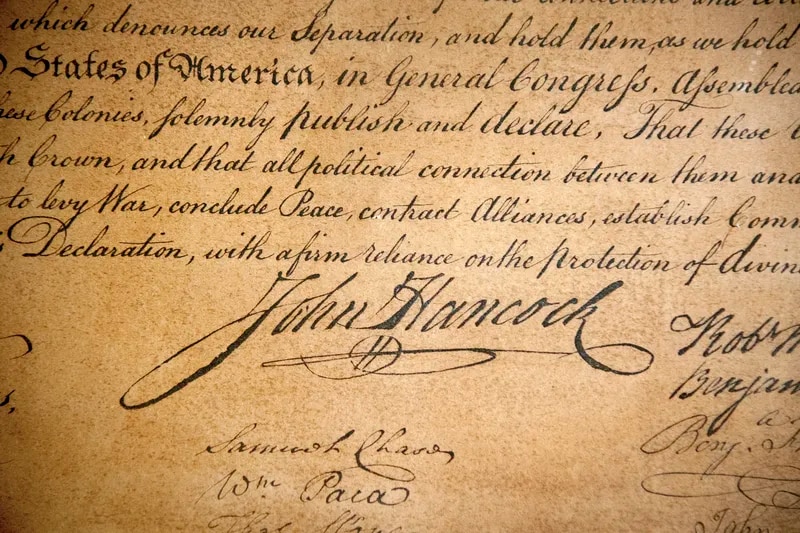 which denounces our Separation, and hold them, as we hold
States of America, in General Congress, Assembled
hese Colonies, solemnly publish and declare, That these
h Crown, and that all political connection between them and
to levy War, conclude Peace, contract Alliances, establish Comm
Declaration, with a firm reliance on the protection of divin
John Hancock
Rob^t M
Benjam
Samuel Chase
Benj^a. F
W^m Paca
Thos Stone
John